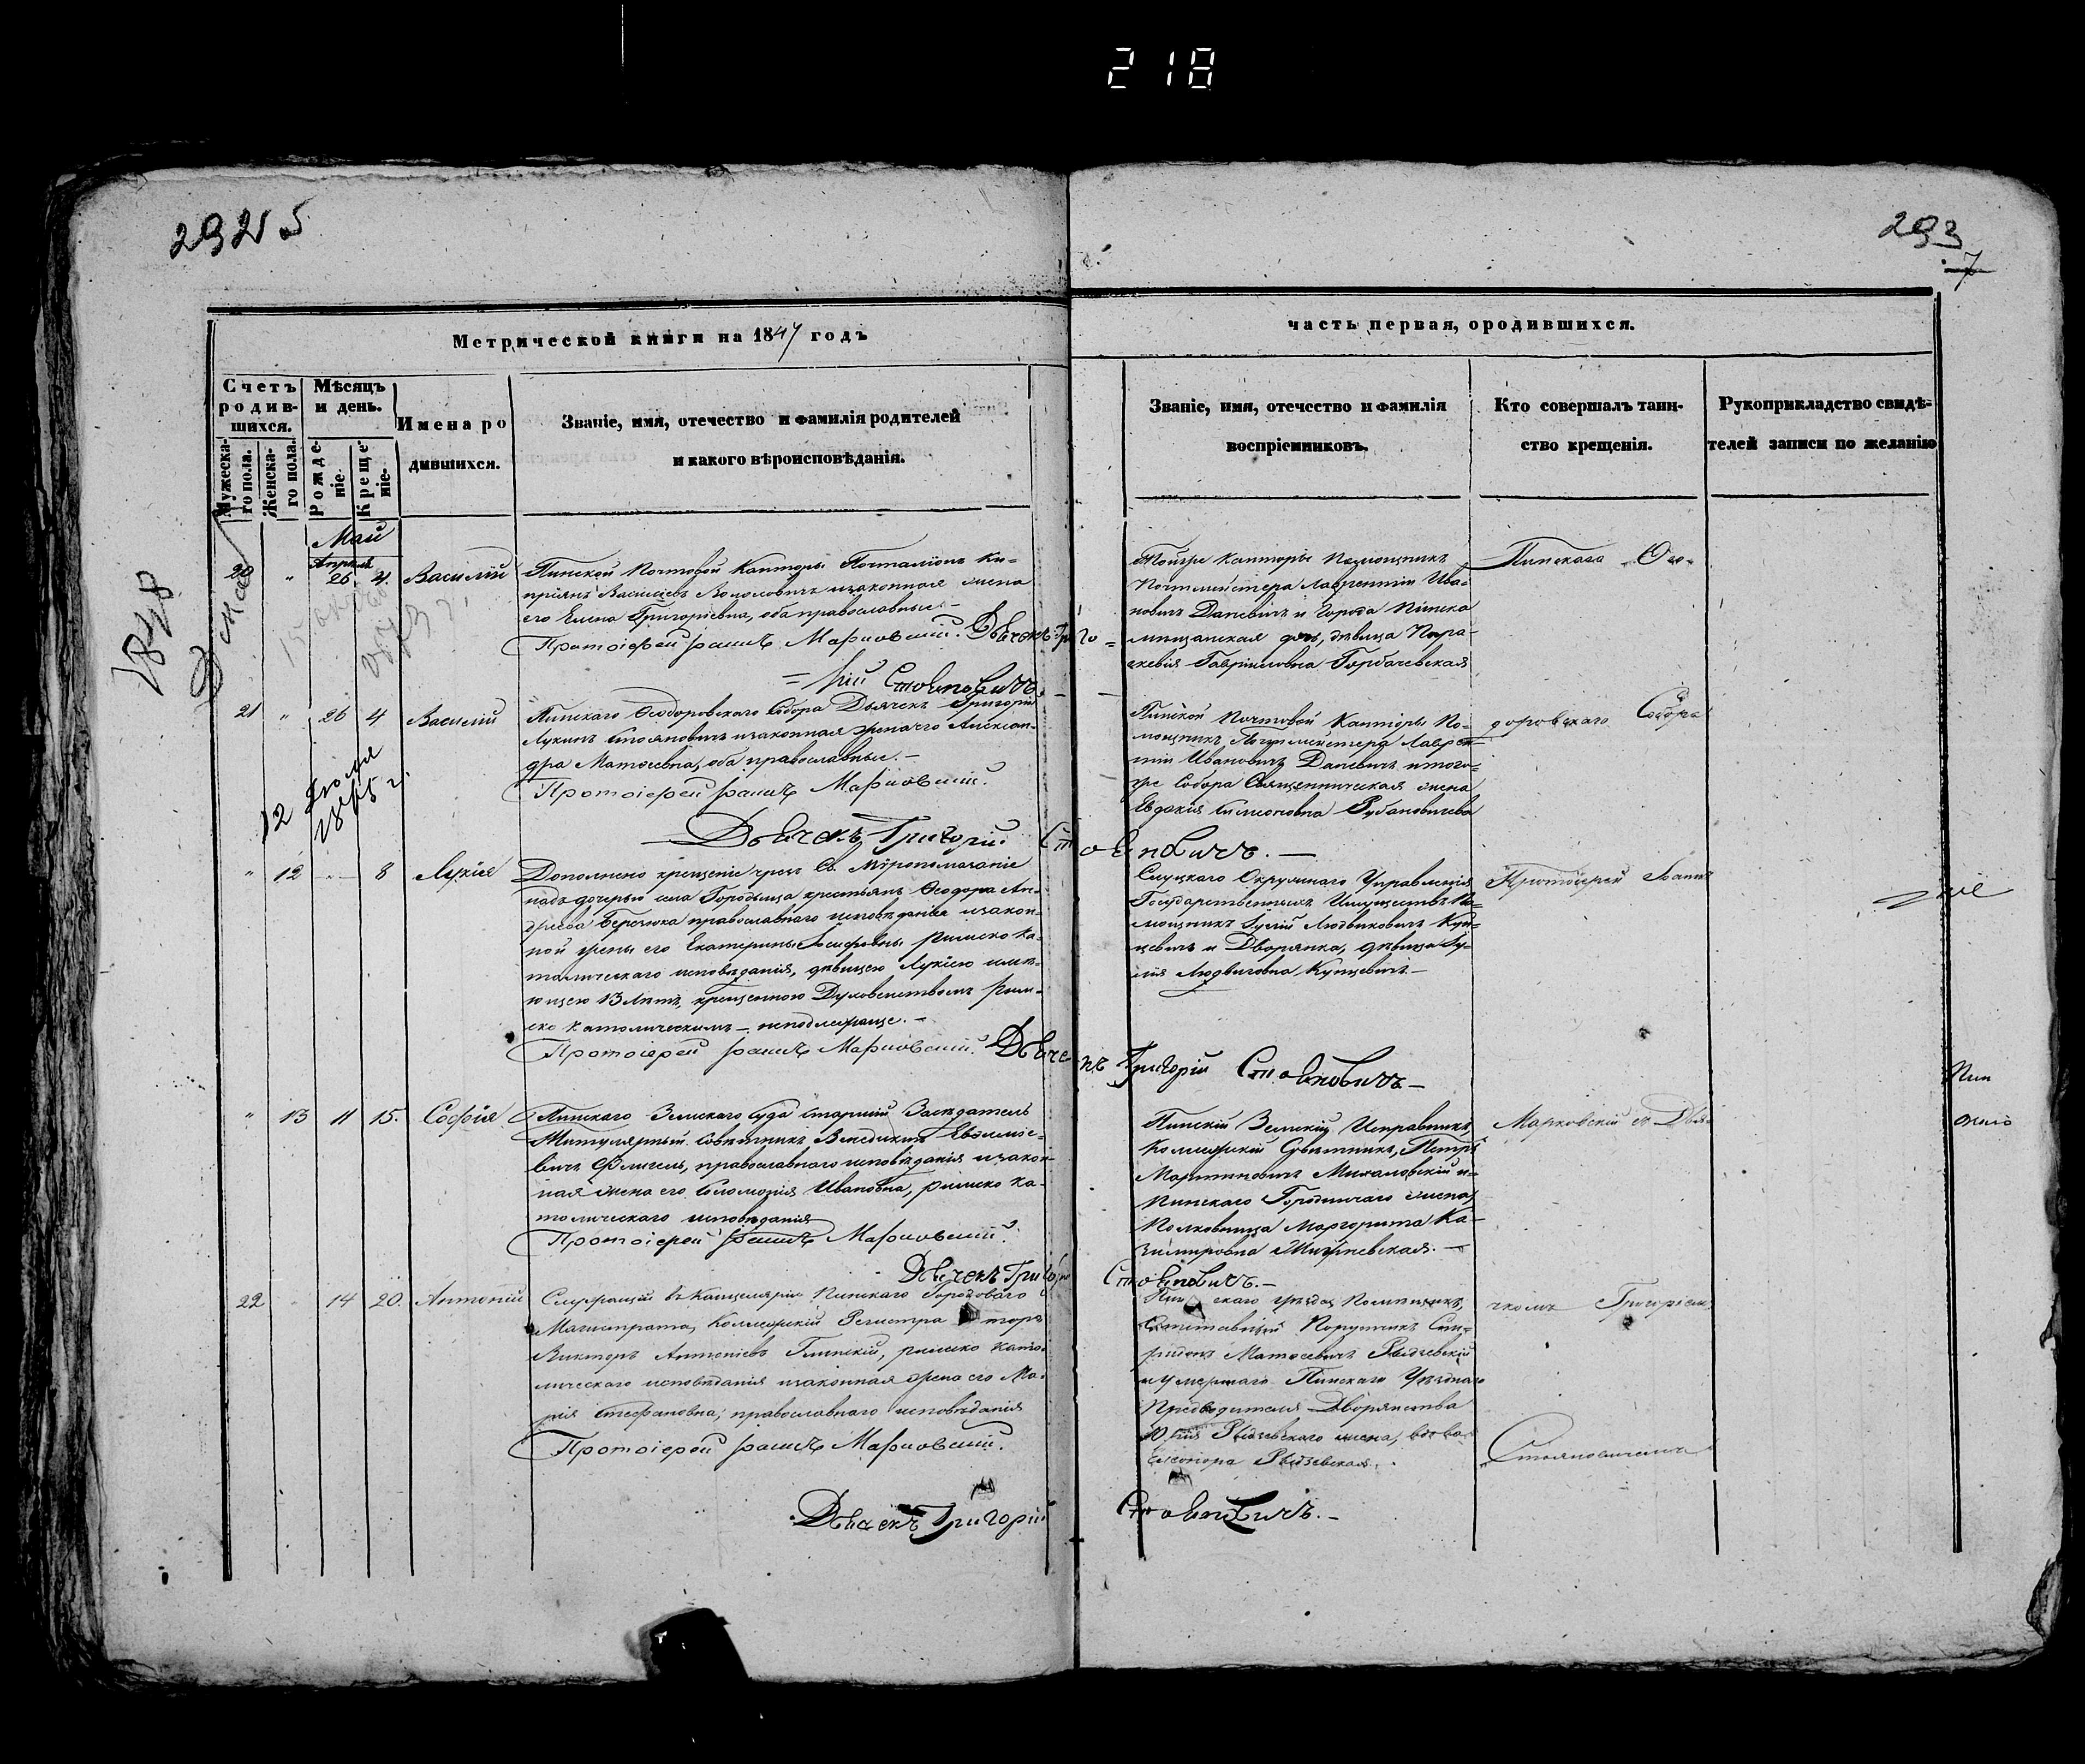 218
29215
293
7
Метрической книги на 1847 годъ
часть первая, ородившихся.
Счетъ родив-
щихся.
Мужеска-
го пола.
Женска-
го пола.
Мѣсяцъ
и день.
Рожде-
ніе.
Креще-
ніе.
Имена ро
дившихся.
Званіе, имя, отечество и фамилія родителей
и какого вѣроисповѣданія.
Званіе, имя, отечество и фамилія
воспріемниковъ.
Кто совершалъ таин-
ство крещенія.
Рукоприкладство свидѣ-
телей записи по желанію
1848
Май
Апрѣля
20 " 26 4. Василій
Пинской Почтовой Канторы Почталіонъ Ки-
пріянъ Василіевъ Волосовичъ изаконная жена
его Елена Григоріевна, оба православные.-
Протоіерей Іоаннъ Марковскій. Дьячекъ Григо=
=рій Стояновичъ.-
Тойже Канторы Помощникъ
Почтмейстера Лаврентій Ива=
новичъ Даневичъ и Города Пинска
мищанская дочь, дѣвица Пара-
скевія Гавріиловна Горбачевская
Пинскаго Ѳео-
21 " 26 4 Василій
Пинскаго Ѳеодоровскаго Собора Дьячекъ Григорій
Лукинъ Стояновичъ изаконная жена его Алексан-
дра Матѳеевна, оба православные.-
Протоіерей Іоаннъ Марковскій.
Дьячекъ Григорій Стояновичъ.-
Пинской Почтовой Канторы По-
мощникъ Почтмейстера Лаврен-
тій Ивановичъ Даневичъ итого-
же Собора Священническая жена
Евдокія Симеоновна Рубановичева
доровскаго Собора
12 Іюля
1865 г.
" 12 " 8 Лукія
Дополнено крещеніе чрезъ Св. Мѵропомазаніе
надъ дочерью села Городища крестьянъ Ѳеодора Ан-
дреева Березюка православнаго исповѣданія изакон-
ной жены его Екатерины Іосифовны римско ка-
толическаго исповѣданія, дѣвицею Лукіею имѣ-
ющею 13 лѣтъ, крещенною Духовенствомъ Рим-
ско католическимъ- неподлежаще.-
Протоіерей Іоаннъ Марковскій. Дьячекъ Григорій Стояновичъ-
Слуцкаго Окружнаго Управленія
Государственныхъ Имуществъ По-
мощникъ Іулій Людвиковичъ Кун-
цевичъ и Дворянка, дѣвица Іу-
лія Людвиговна Кунцевичъ-
Протоіерей Іоаннъ
" 13 11 15. Софія
Пинскаго Земскаго Суда Старшій Засѣдатель
Титулярный Совѣтникъ Венедиктъ
Флигель, православнаго исповѣданія изакон-
ная жена его Саломонія Ивановна, римско ка-
толическаго исповѣданія
Протоіерей Іоаннъ Марковскій.
Дьячекъ Григорій Стояновичъ.-
Пинскій Земскій Исправникъ
Колежскій Совѣтникъ, Петръ
Мартиновичъ Михаловскій и-
Пинскаго Городничаго жена,
Полковница Маргорита Ка-
зимировна Жигневская.-
Марковскій съ Дья-
22 14 20. Антоній
Служащій въ Канцеляріи Пинскаго Городоваго
Магистрата, Колежскій Регистраторъ
Викторъ Антоніевъ Глинскій, римско като-
лическаго исповѣданія изаконная жена его Ма-
рія Стефановна, православнаго исповѣданія
Протоіерей Іоаннъ Марковскій.
Дьячекъ Григорій Стояновичъ.-
Пинскаго уѣзда Помѣщикъ,
Отставный Порутчикъ Спи-
ридонъ Матѳеевичъ Рыдзевскій
и умершаго Пинскаго Уѣзднаго
Предводителя Дворянства
Юрія Рыдзевскаго жена, вдова
Елеонора Рыдзевская.
чкомъ Григоріемъ
Стояновичемъ